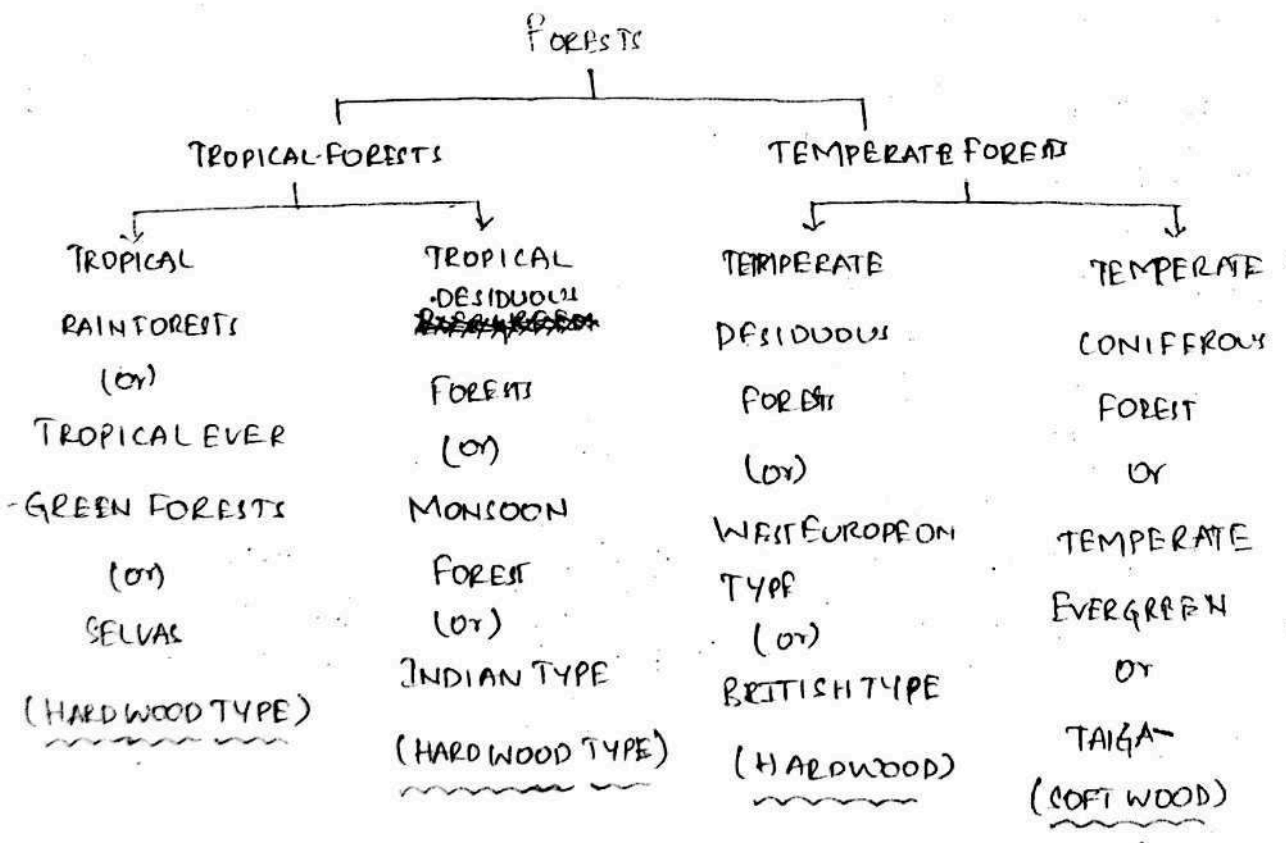 FORESTS
TROPICAL FORESTS
TEMPERATE FORESTS
TROPICAL
RAINFORESTS
(or)
TROPICAL EVER
-GREEN FORESTS
(or)
SELVAS
(HARDWOOD TYPE)
TROPICAL
DESIDUOUS
FORESTS
(or)
MONSOON
FOREST
(or)
INDIAN TYPE
(HARDWOOD TYPE)
TEMPERATE
DESIDUOUS
FORESTS
(or)
WEST EUROPEON
TYPE
(or)
BRITISH TYPE
(HARDWOOD)
TEMPERATE
CONIFEROUS
FOREST
or
TEMPERATE
EVERGREEN
or
TAIGA
(SOFT WOOD)